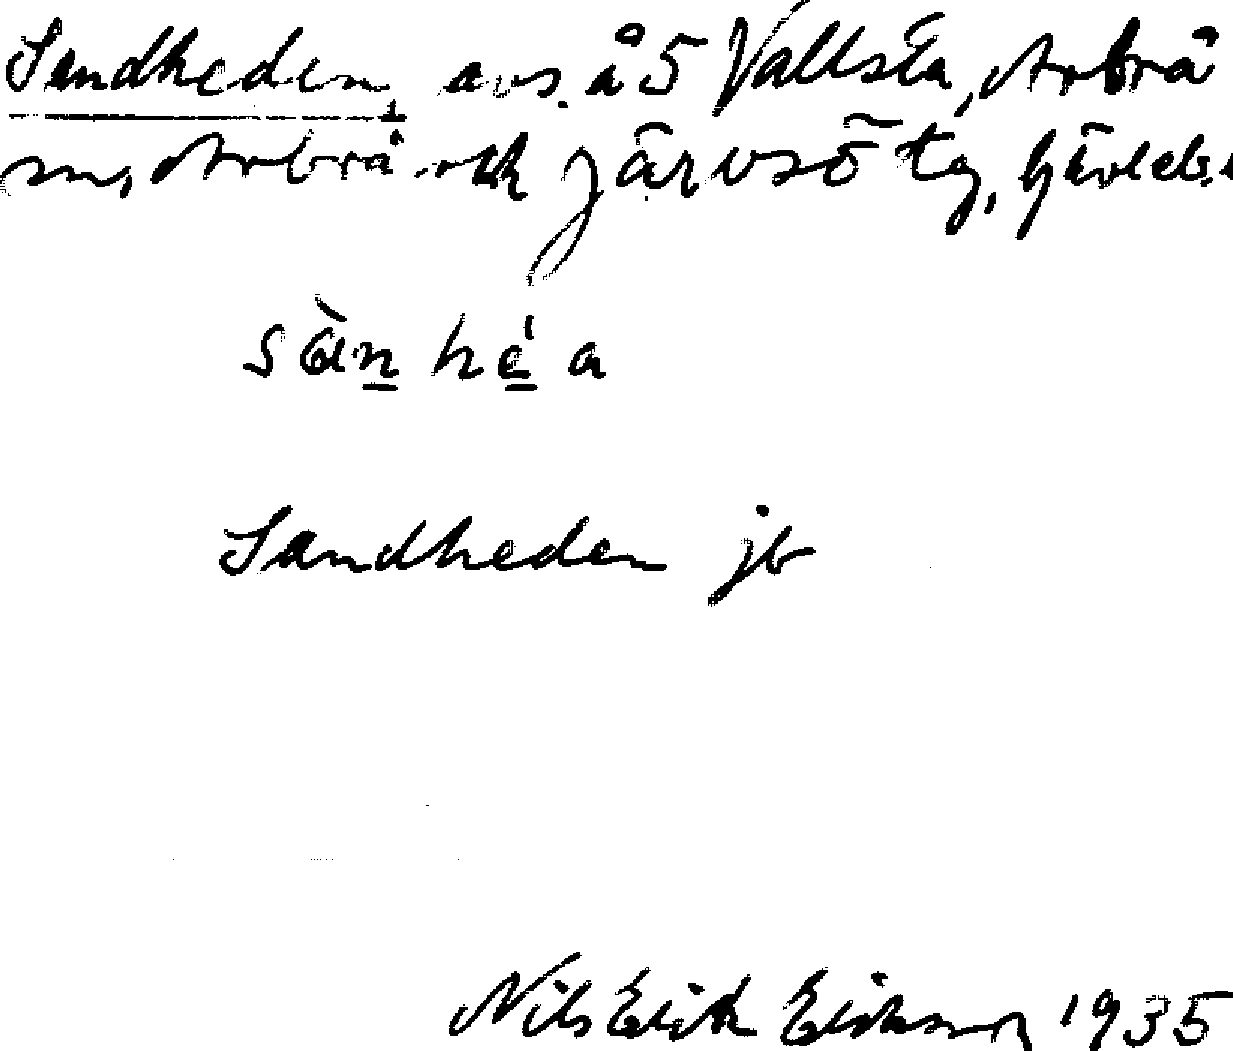 Sandheden, avs. å 5 Vallsta, Arbrå
sn, Arbrå och Järvsö tg, Gävleb.
sànhéa
Sandheden jb
Nils Erik Eriksson 1935